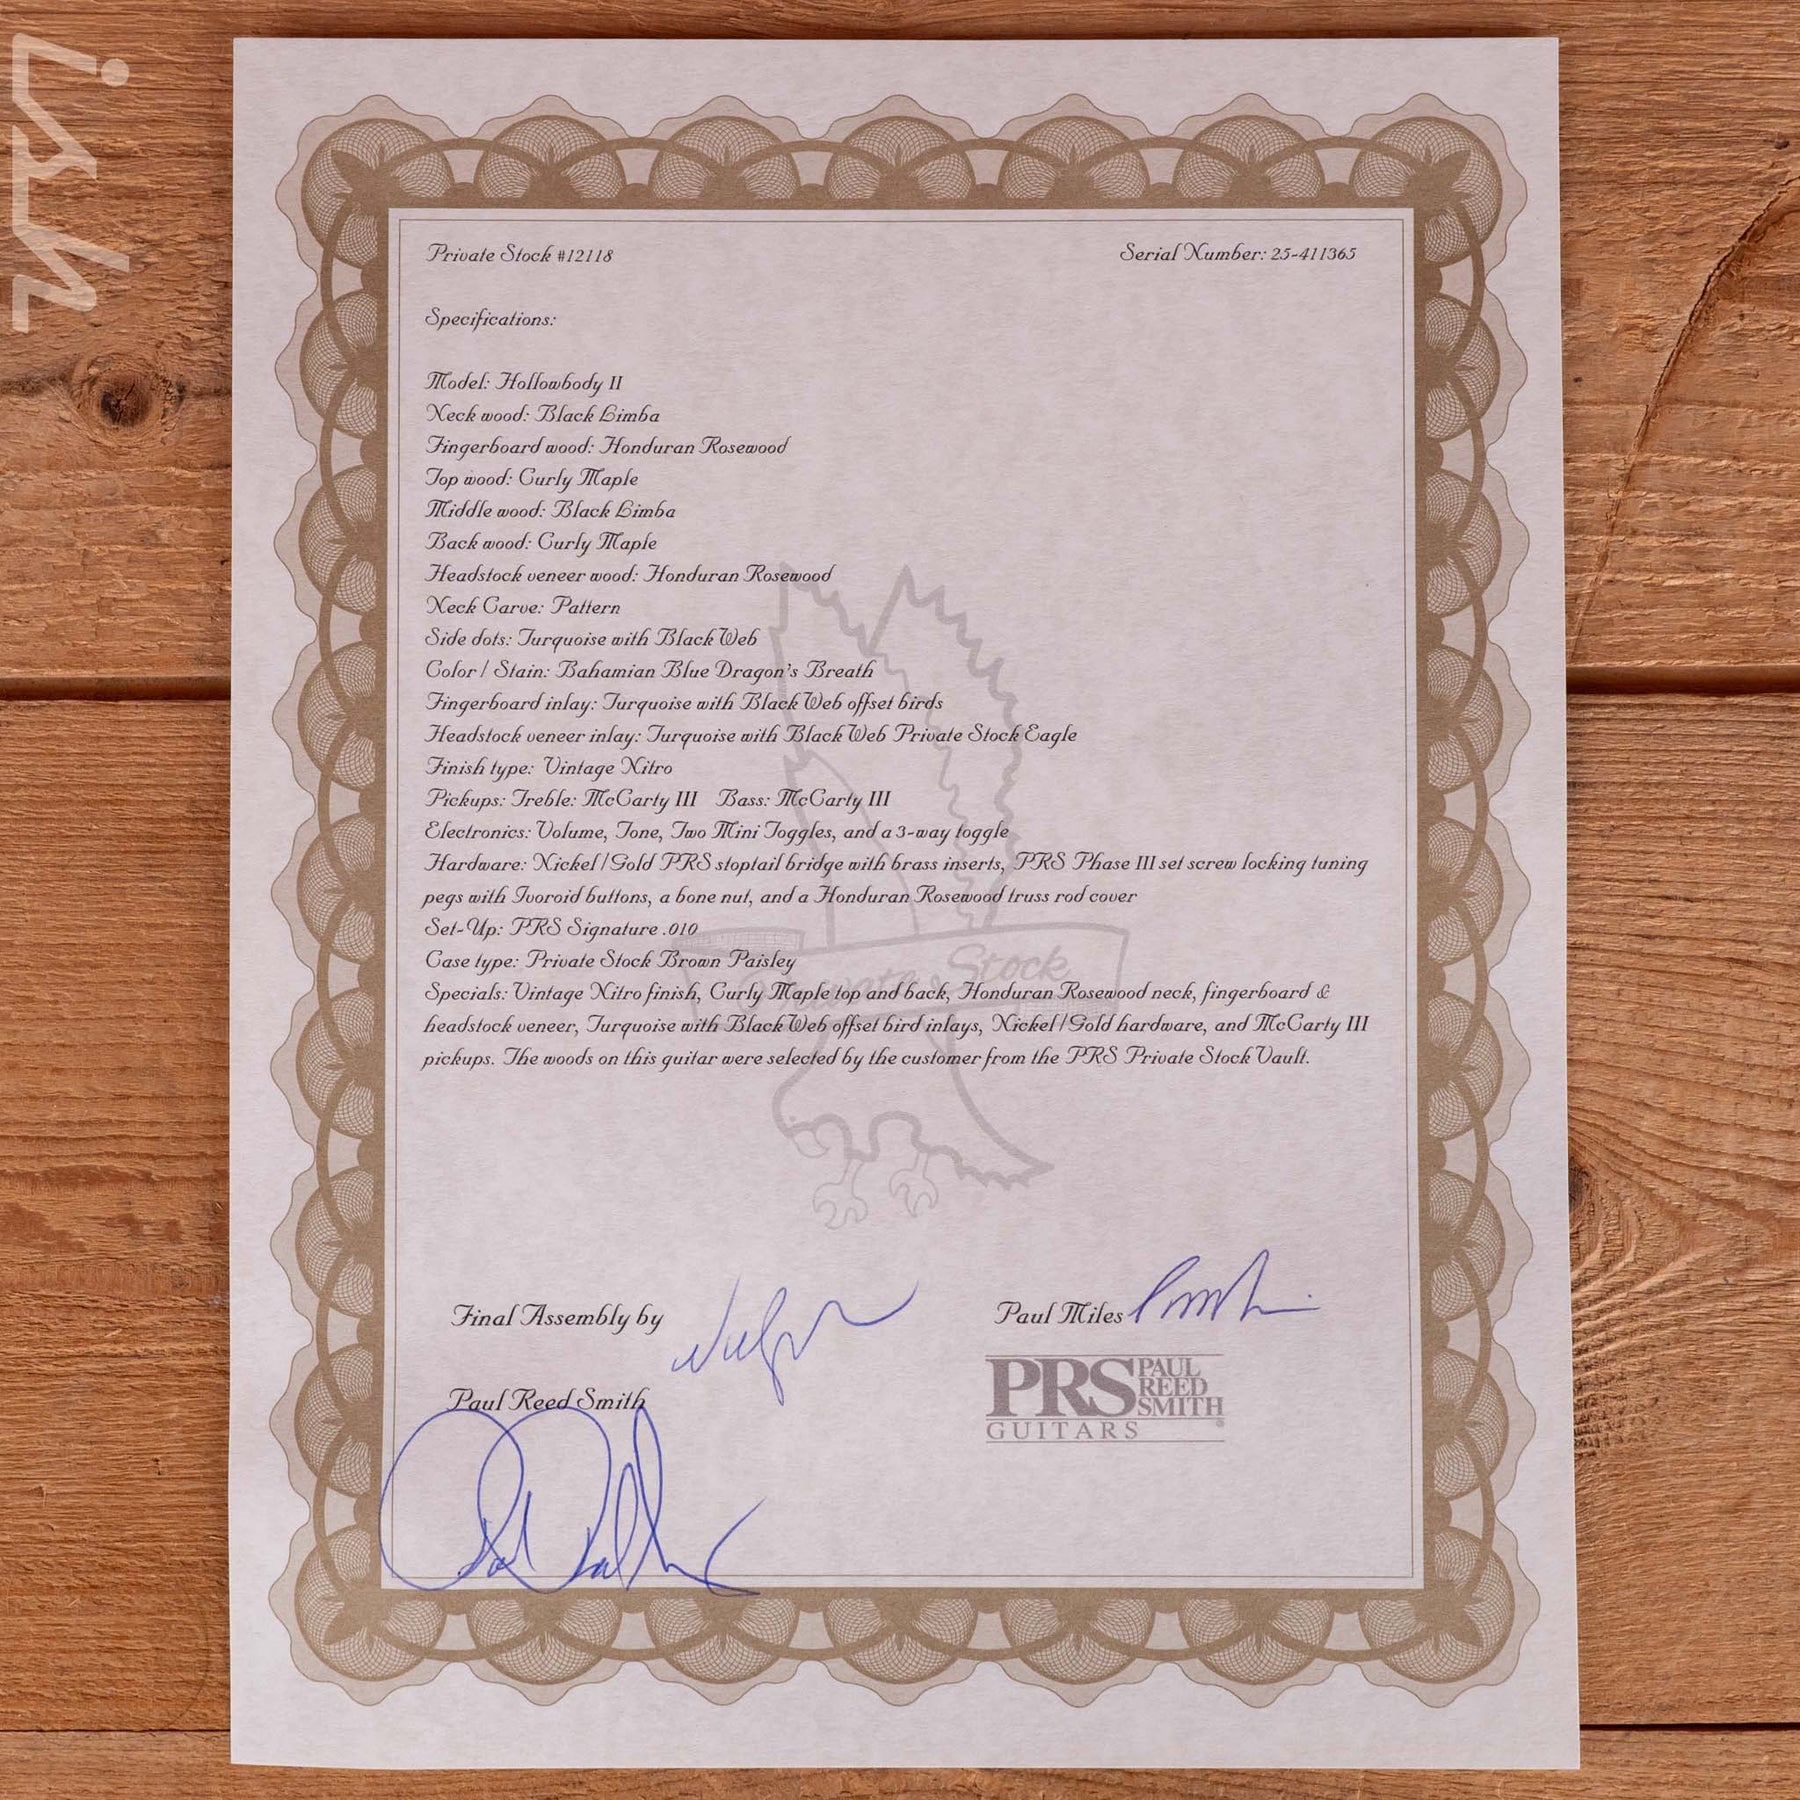 Private Stock #12118
Serial Number: 25-411365
Specifications:
Model: Hollowbody II
Neck wood: Black Limba
Fingerboard wood: Honduran Rosewood
Top wood: Curly Maple
Middle wood: Black Limba
Back wood: Curly Maple
Headstock veneer wood: Honduran Rosewood
Neck Carve: Pattern
Side dots: Turquoise with Black Web
Color / Stain: Bahamian Blue Dragon's Breath
Fingerboard inlay: Turquoise with Black Web offset birds
Headstock veneer inlay: Turquoise with Black Web Private Stock Eagle
Finish type: Vintage Nitro
Pickups: Treble: McCarty III Bass: McCarty III
Electronics: Volume, Tone, Two Mini Toggles, and a 3-way toggle
Hardware: Nickel/Gold PRS stoptail bridge with brass inserts, PRS Phase III set screw locking tuning
pegs with Ivoroid buttons, a bone nut, and a Honduran Rosewood truss rod cover
Set-Up: PRS Signature .010
Case type: Private Stock Brown Paisley
Specials: Vintage Nitro finish, Curly Maple top and back, Honduran Rosewood neck, fingerboard &
headstock veneer, Turquoise with Black Web offset bird inlays, Nickel/Gold hardware, and McCarty III
pickups. The woods on this guitar were selected by the customer from the PRS Private Stock Vault.
Private Stock
Final Assembly by
Paul Miles
Paul Reed Smith
PRS PAUL REED SMITH
GUITARS ®